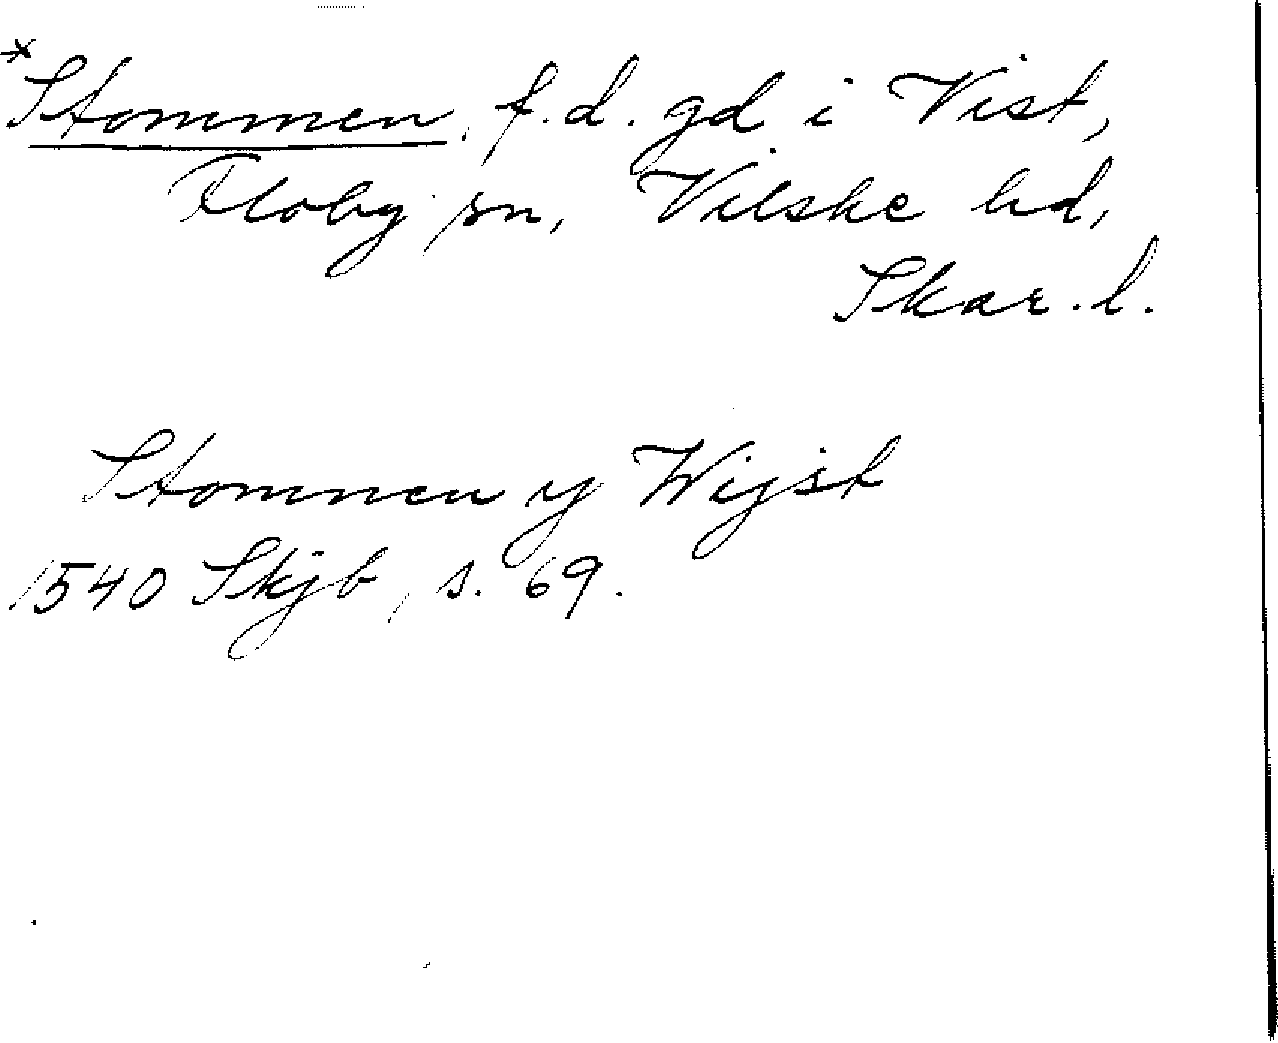 *Stommen, f.d. gd i Vist,
Floby sn, Vilske hd,
Skar. l.
Stommen y Wijst
1540 Skjb, s. 69.